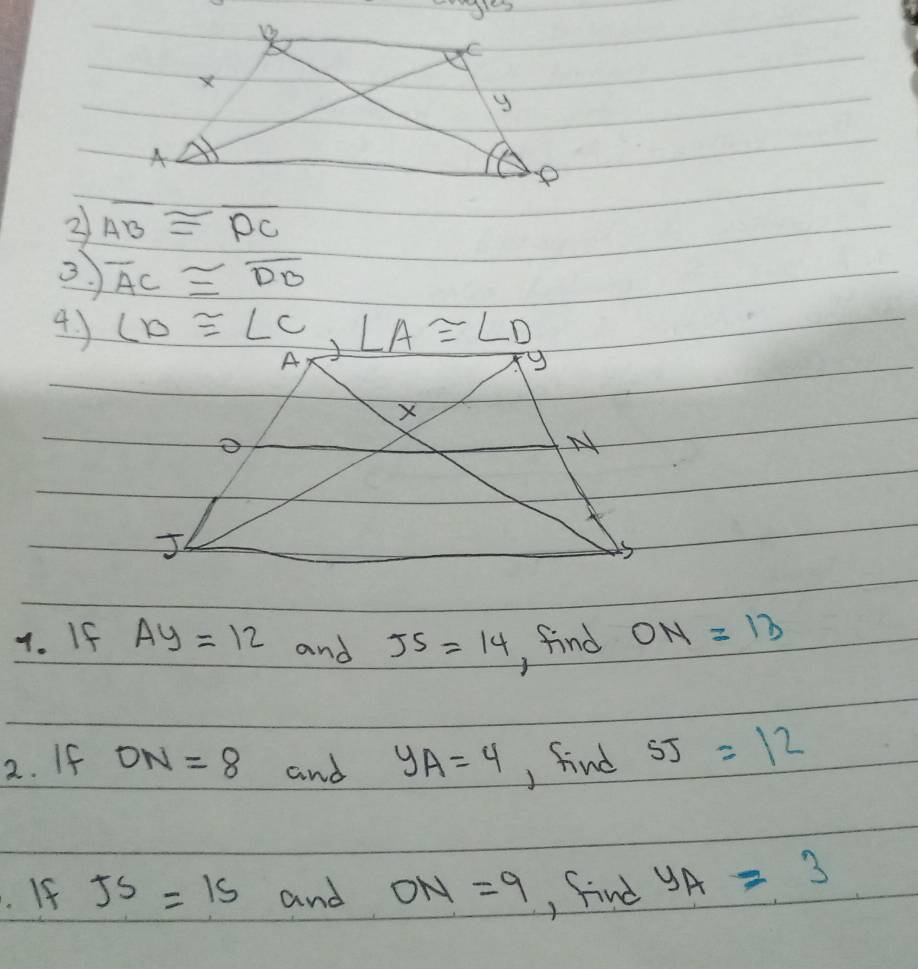 angles
B C
x y
A D
2) AB ≅ DC
3.) AC ≅ DB
4.) ∠B ≅ ∠C, ∠A ≅ ∠D
A y
x
O N
J S
1. If Ay = 12 and JS = 14, find ON = 13
2. If ON = 8 and yA = 4, find SJ = 12
. If JS = 15 and ON = 9, find yA = 3